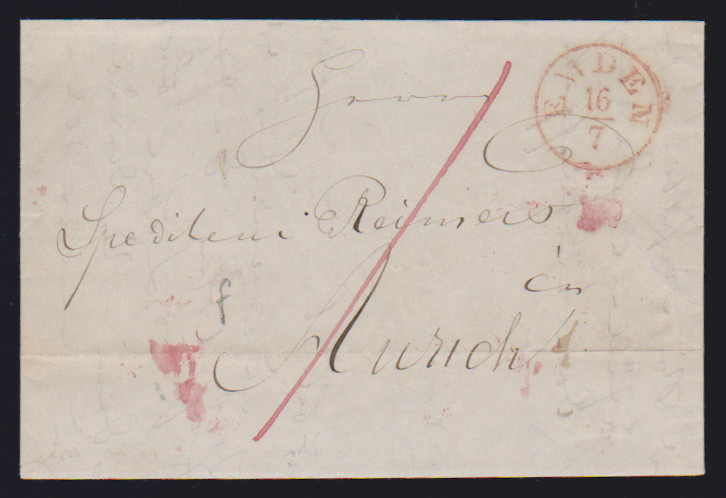 EMDEN
16
7
Herrn
Spediteur Reimers
in
Aurich
f